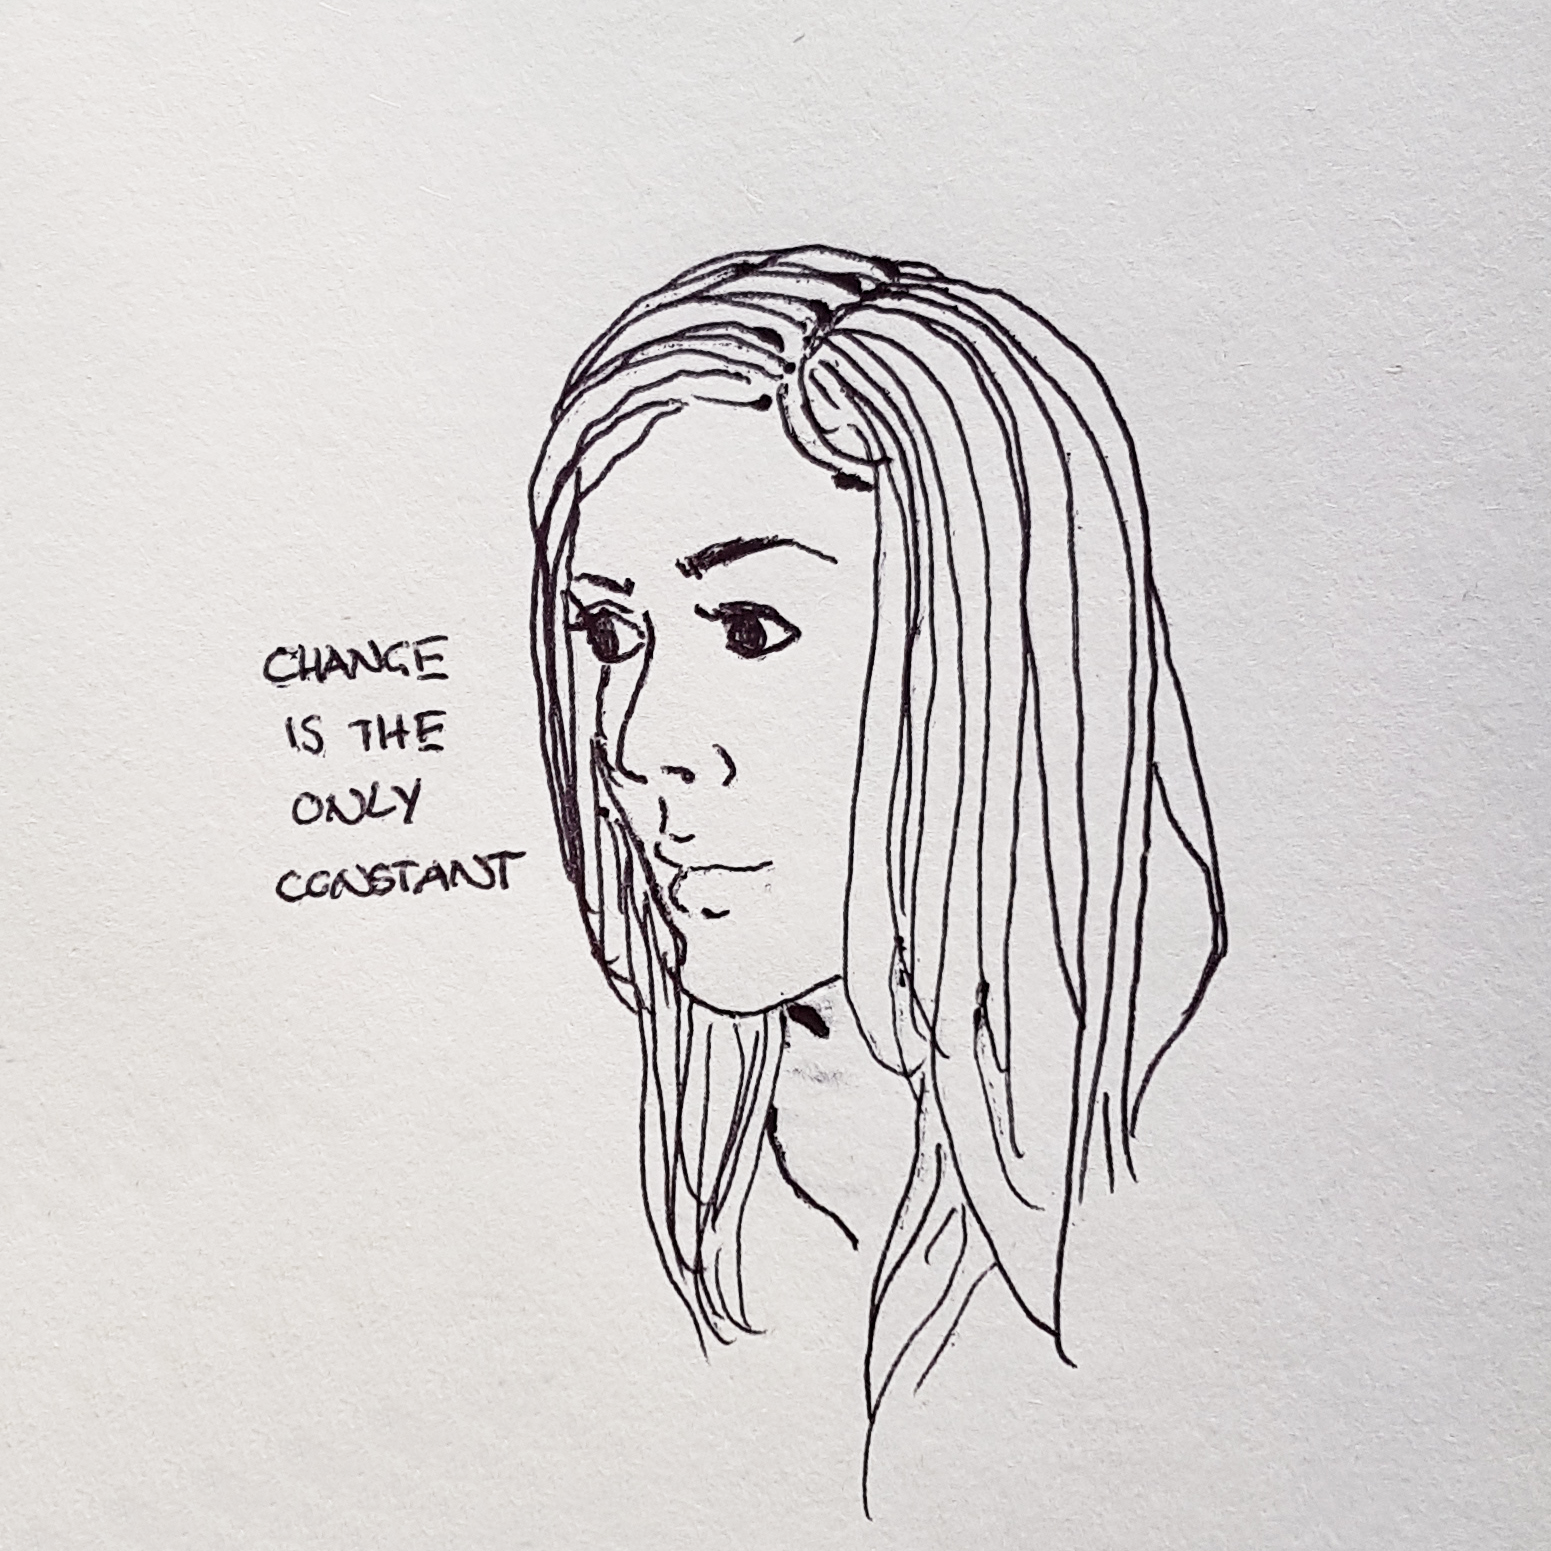 CHANGE
IS THE
ONLY
CONSTANT